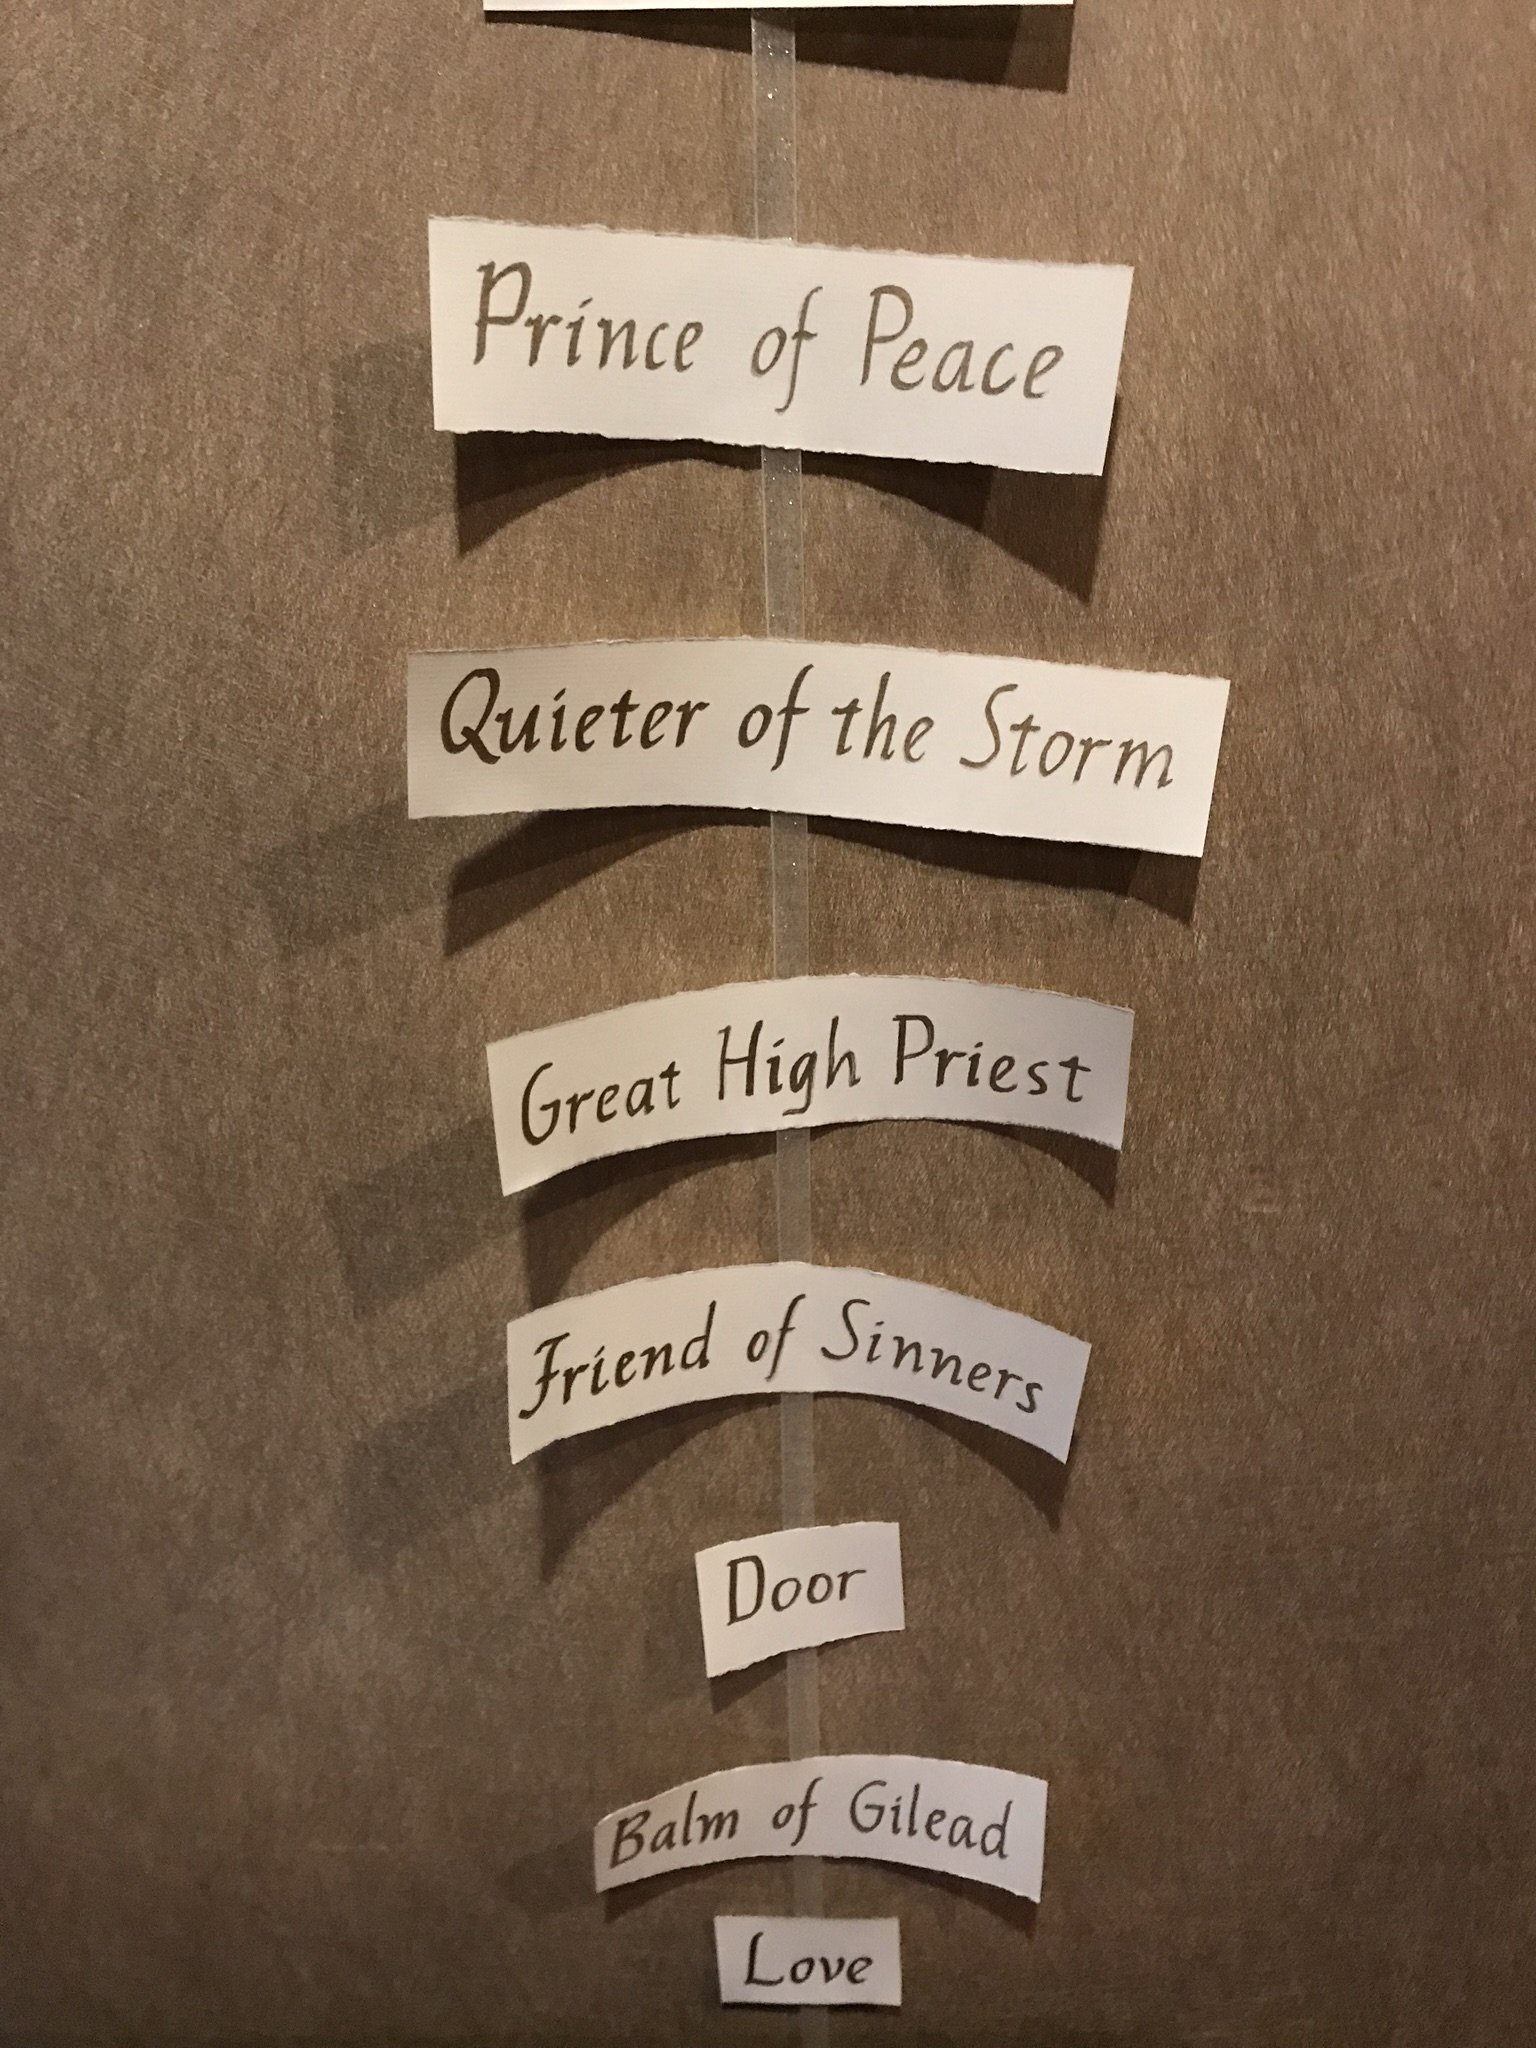 Prince of Peace
Quieter of the Storm
Great High Priest
Friend of Sinners
Door
Balm of Gilead
Love